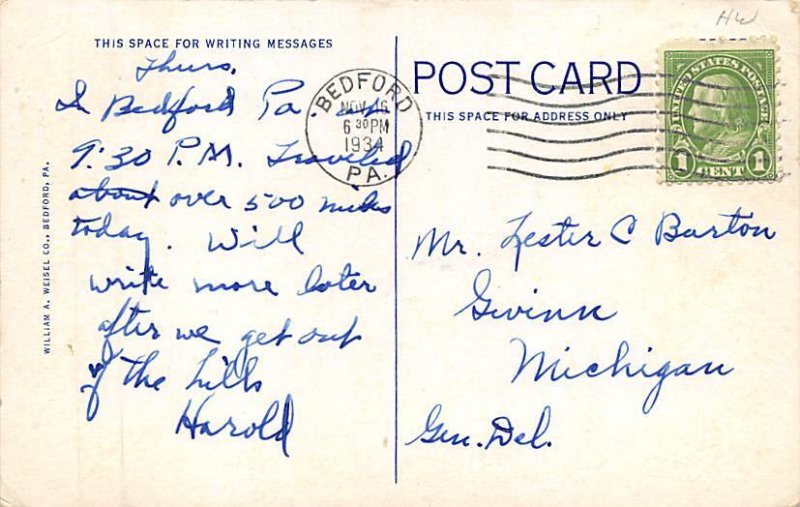 HW
THIS SPACE FOR WRITING MESSAGES
Thurs.
In Bedford Pa. at
9:30 P.M. Traveled
about over 500 miles
today. Will
write more later
after we get out
of the hills
Harold
WILLIAM A. WEISEL CO., BEDFORD, PA.
BEDFORD
NOV 16
6 30 PM
1934
PA.
POST CARD
THIS SPACE FOR ADDRESS ONLY
UNITED STATES POSTAGE
1 CENT 1
Mr. Lester C Barton
Gwinn
Michigan
Gen. Del.